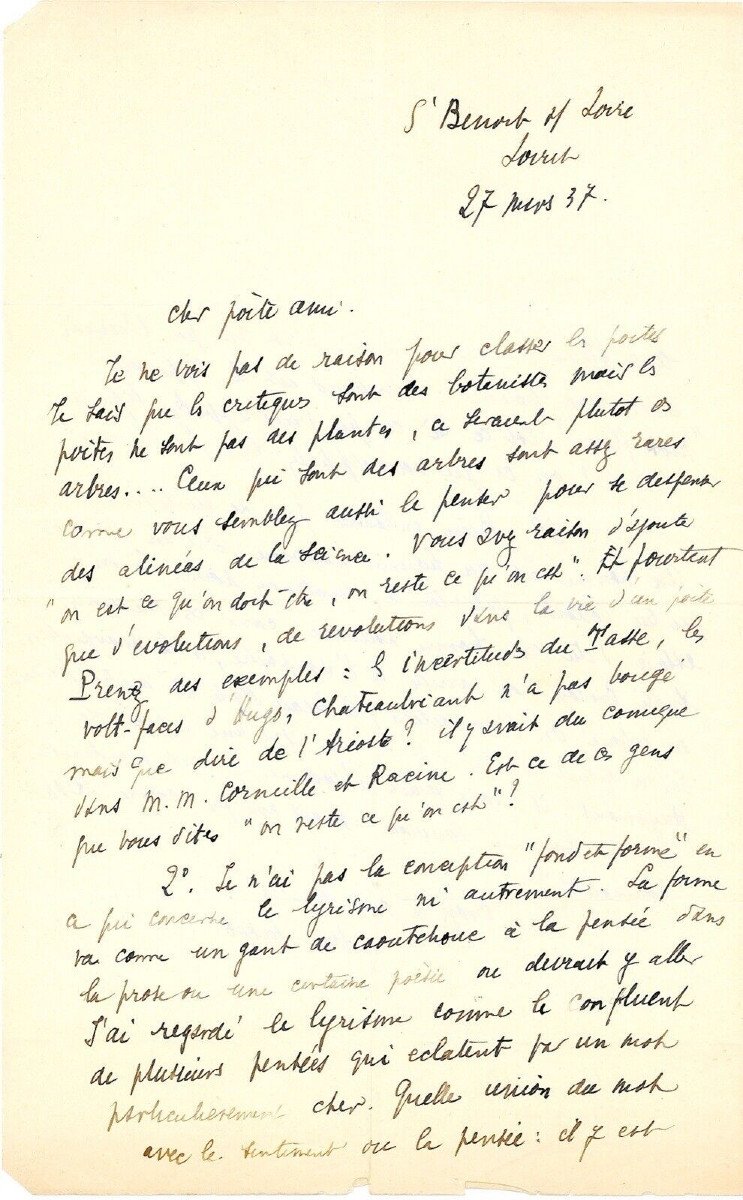 St Benoit s/ Loire
Loiret
27 Mars 37.
cher poète ami.
Je ne vois pas de raison pour classer les poètes
Je sais que les critiques sont des botanistes mais les
poètes ne sont pas des plantes, ce seraient plutot des
arbres.... Ceux qui sont des arbres sont assez rares
comme vous semblez aussi le penser pour se dispenser
des alinéas de la science. Vous avez raison d'ajouter
"on est ce qu'on doit être, on reste ce qu'on est". Et pourtant
que d'evolutions, de revolutions dans la vie d'un poète
Prenez des exemples : les incertitudes du Tasse, les
volt-faces d'Hugo, Chateaubriant n'a pas bougé
mais que dire de l'Arioste? il y avait du comique
dans M.M. Corneille et Racine. Est ce de ces gens
que vous dites "on reste ce qu'on est"?
2°. Je n'ai pas la conception "fond et forme" en
ce qui concerne le lyrisme ni autrement. La forme
va comme un gant de caoutchouc à la pensée dans
la prose ou une certaine poésie ou devrait y aller
J'ai regardé le lyrisme comme le confluent
de plusieurs pensées qui eclatent par un mot
particulierement cher. Quelle union du mot
avec le sentiment ou la pensée : il y est